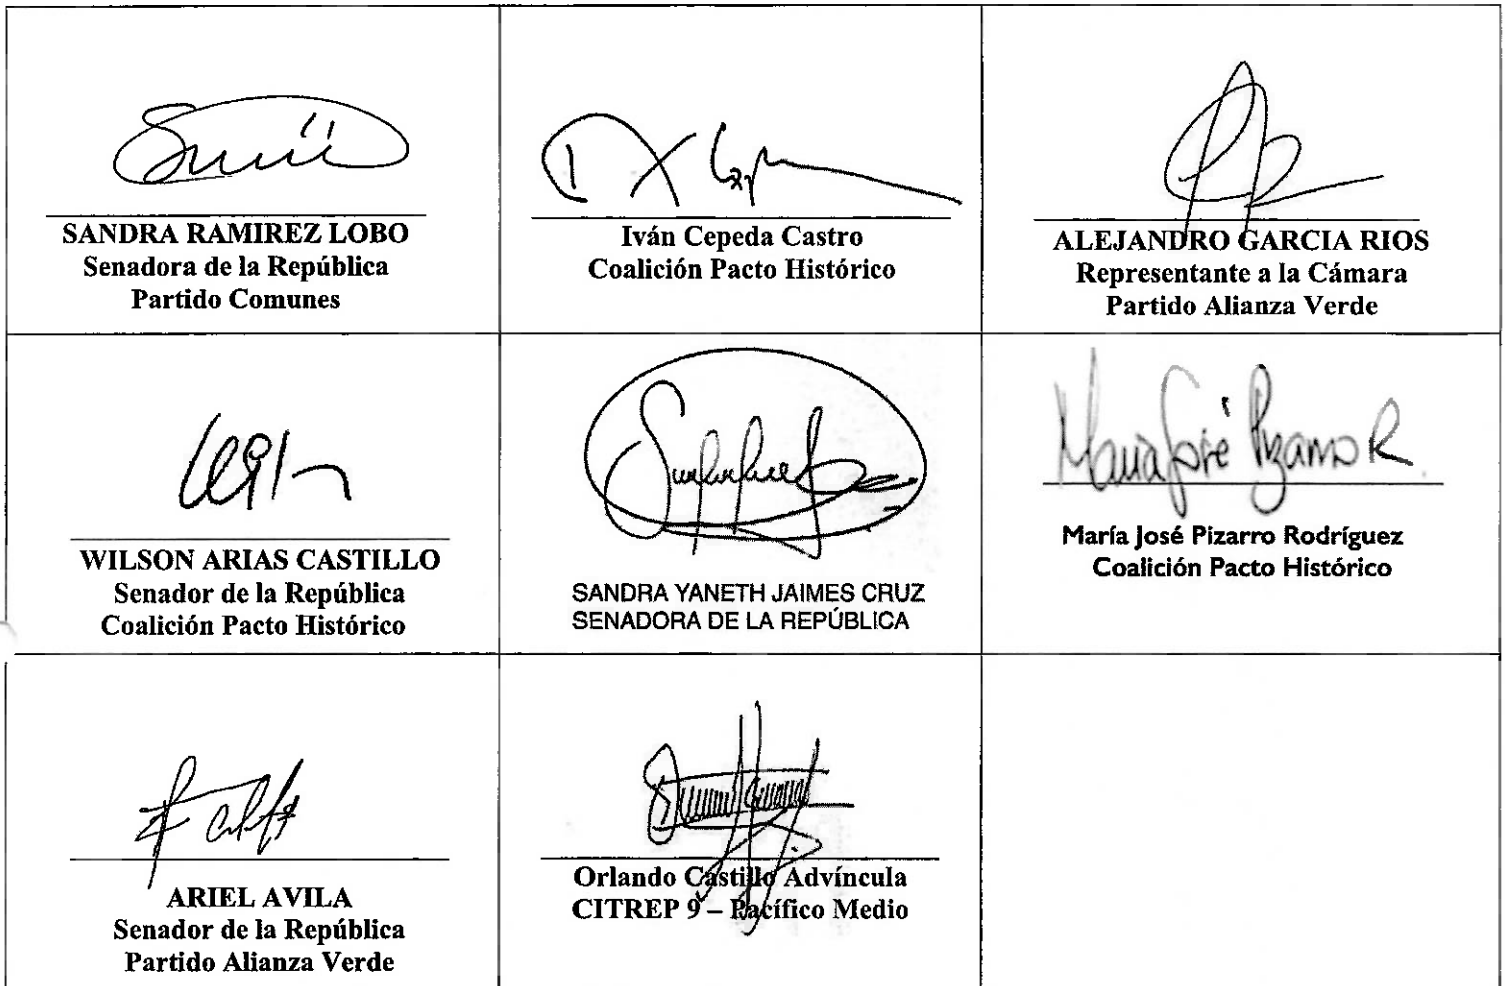 SANDRA RAMIREZ LOBO
Senadora de la República
Partido Comunes
Iván Cepeda Castro
Coalición Pacto Histórico
ALEJANDRO GARCIA RIOS
Representante a la Cámara
Partido Alianza Verde
WILSON ARIAS CASTILLO
Senador de la República
Coalición Pacto Histórico
SANDRA YANETH JAIMES CRUZ
SENADORA DE LA REPÚBLICA
María José Pizarro R.
María José Pizarro Rodríguez
Coalición Pacto Histórico
ARIEL AVILA
Senador de la República
Partido Alianza Verde
Orlando Castillo Advíncula
CITREP 9 – Pacífico Medio